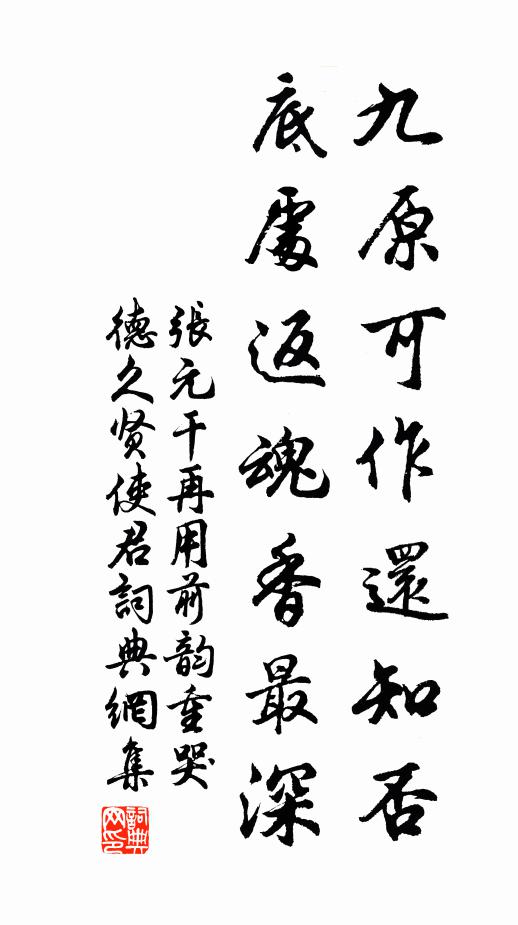 九原可作還知否
底處返魂香最深
張元干再用前韵重哭
德久贤使君詞典網集
詞典網印